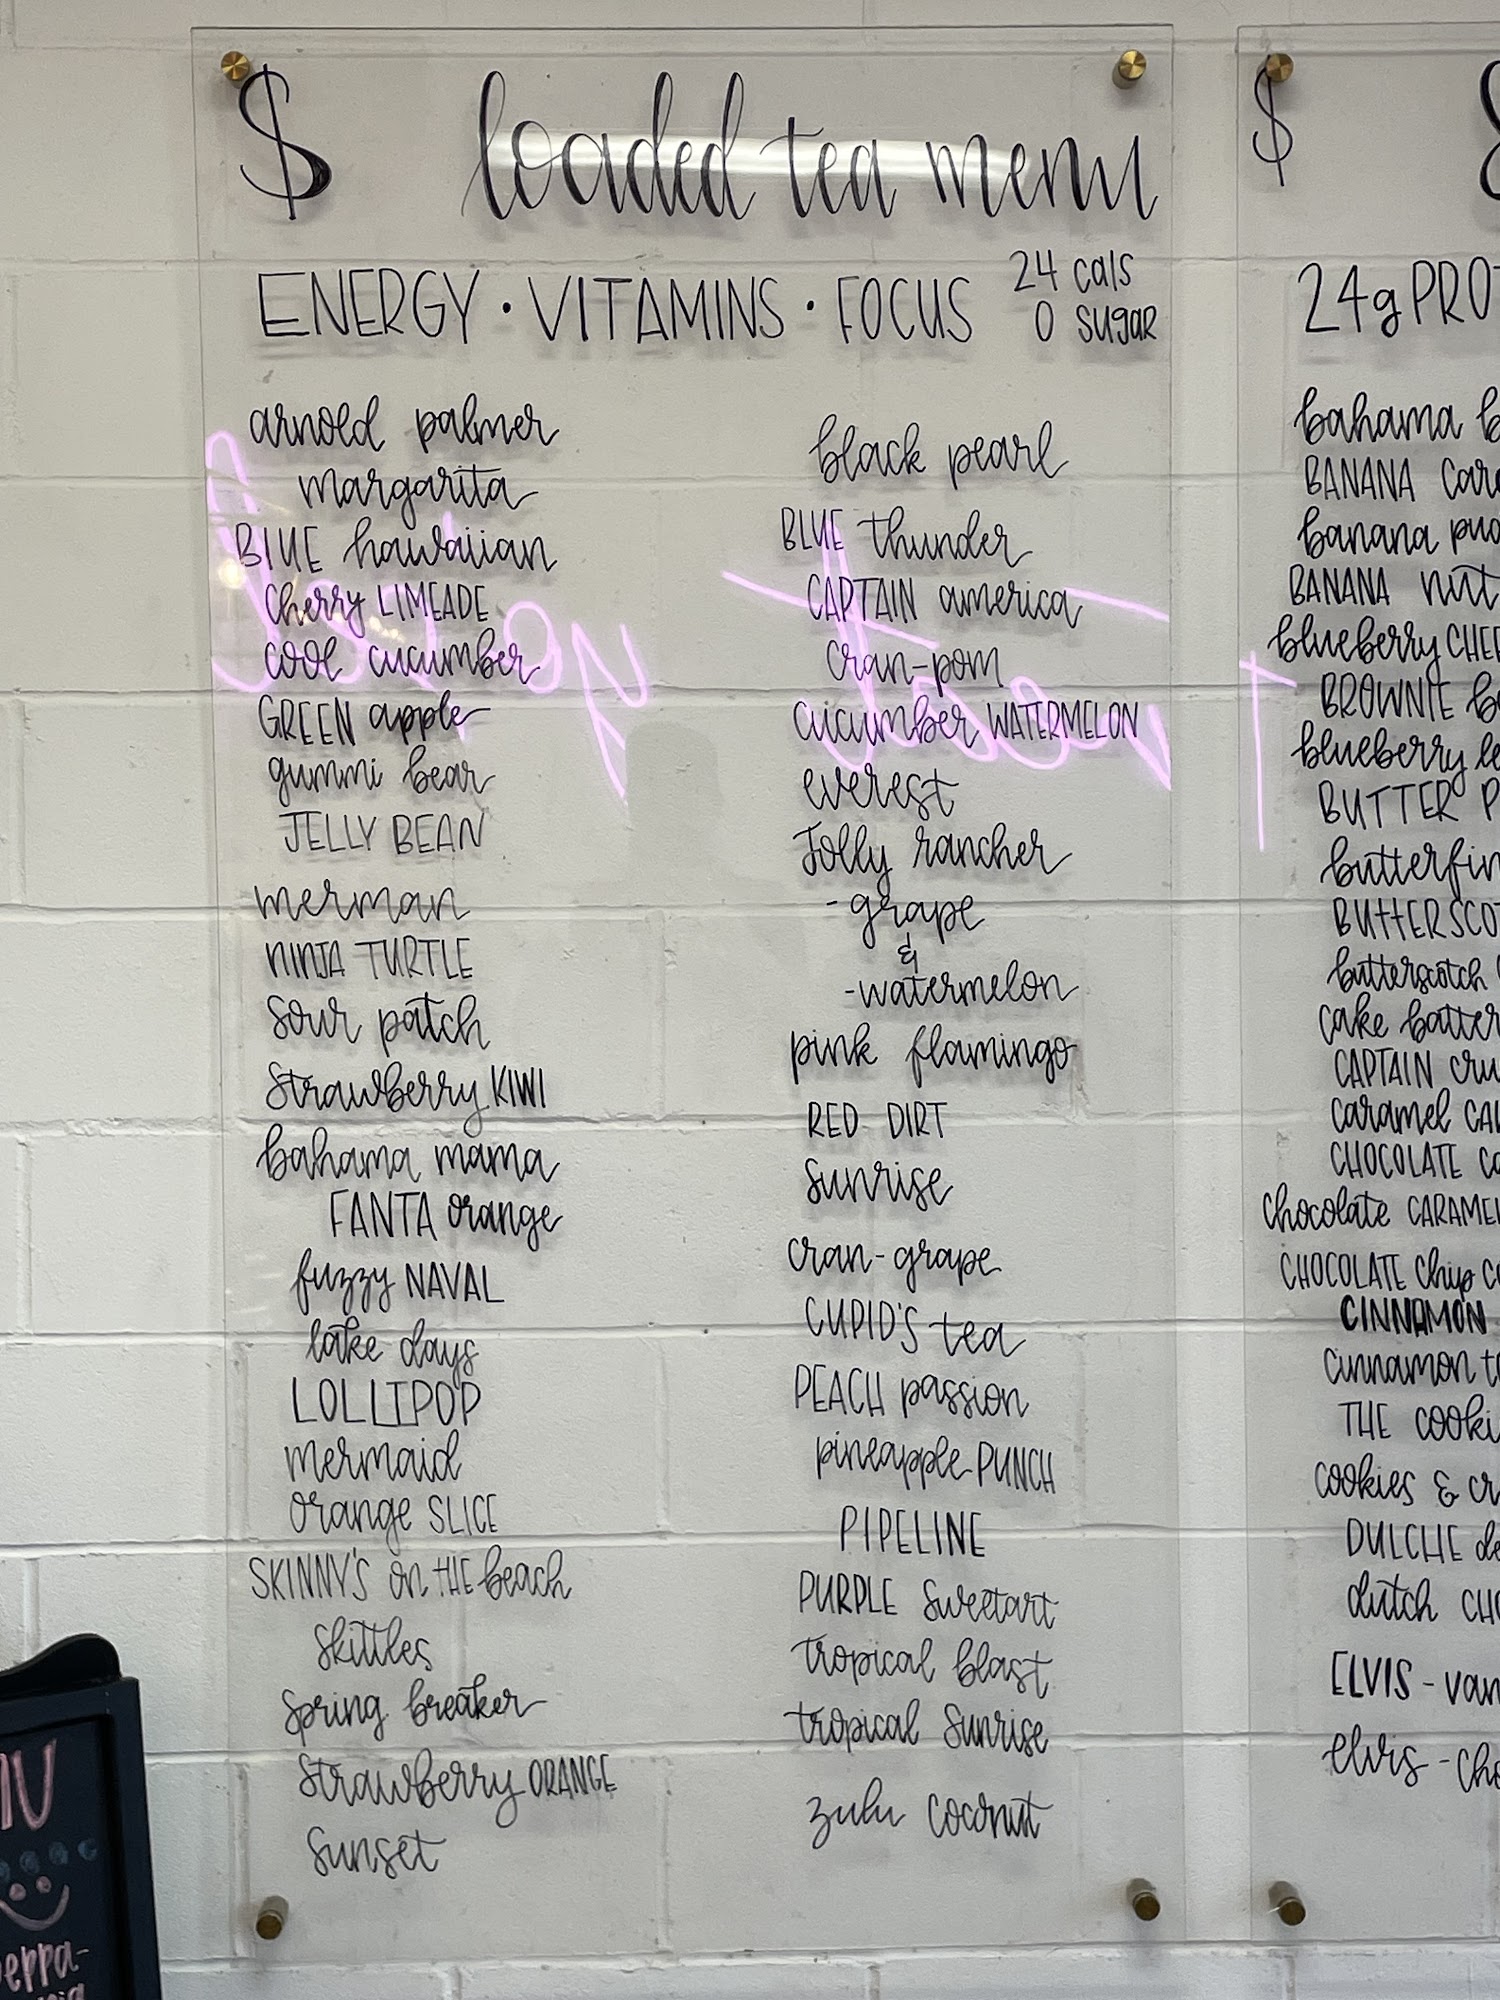 $ loaded tea menu
ENERGY · VITAMINS · FOCUS
24 cals
0 sugar
arnold palmer
margarita
BLUE hawaiian
cherry LIMEADE
cool cucumber
GREEN apple
gummi bear
JELLY BEAN
merman
NINJA TURTLE
sour patch
strawberry KIWI
bahama mama
FANTA orange
fuzzy NAVAL
lake days
LOLLIPOP
mermaid
orange SLICE
SKINNY'S on THE beach
skittles
spring breaker
strawberry ORANGE
sunset
black pearl
BLUE thunder
CAPTAIN america
cran-pom
cucumber WATERMELON
everest
Jolly rancher
-grape
&
-watermelon
pink flamingo
RED DIRT
sunrise
cran-grape
CUPID'S tea
PEACH passion
pineapple PUNCH
PIPELINE
PURPLE sweetart
tropical blast
tropical sunrise
zulu coconut
$
24g PRO
bahama b
BANANA car
banana pud
BANANA nut
blueberry CHEE
BROWNIE b
blueberry le
BUTTER P
butterfin
BUTTERSCOT
butterscotch
cake batter
CAPTAIN cru
caramel CA
CHOCOLATE co
chocolate CARAMEL
CHOCOLATE chip C
CINNAMON
cinnamon t
THE cooki
cookies & cr
DULCHE de
dutch CHO
ELVIS - van
elvis - cho
NU
eppa-